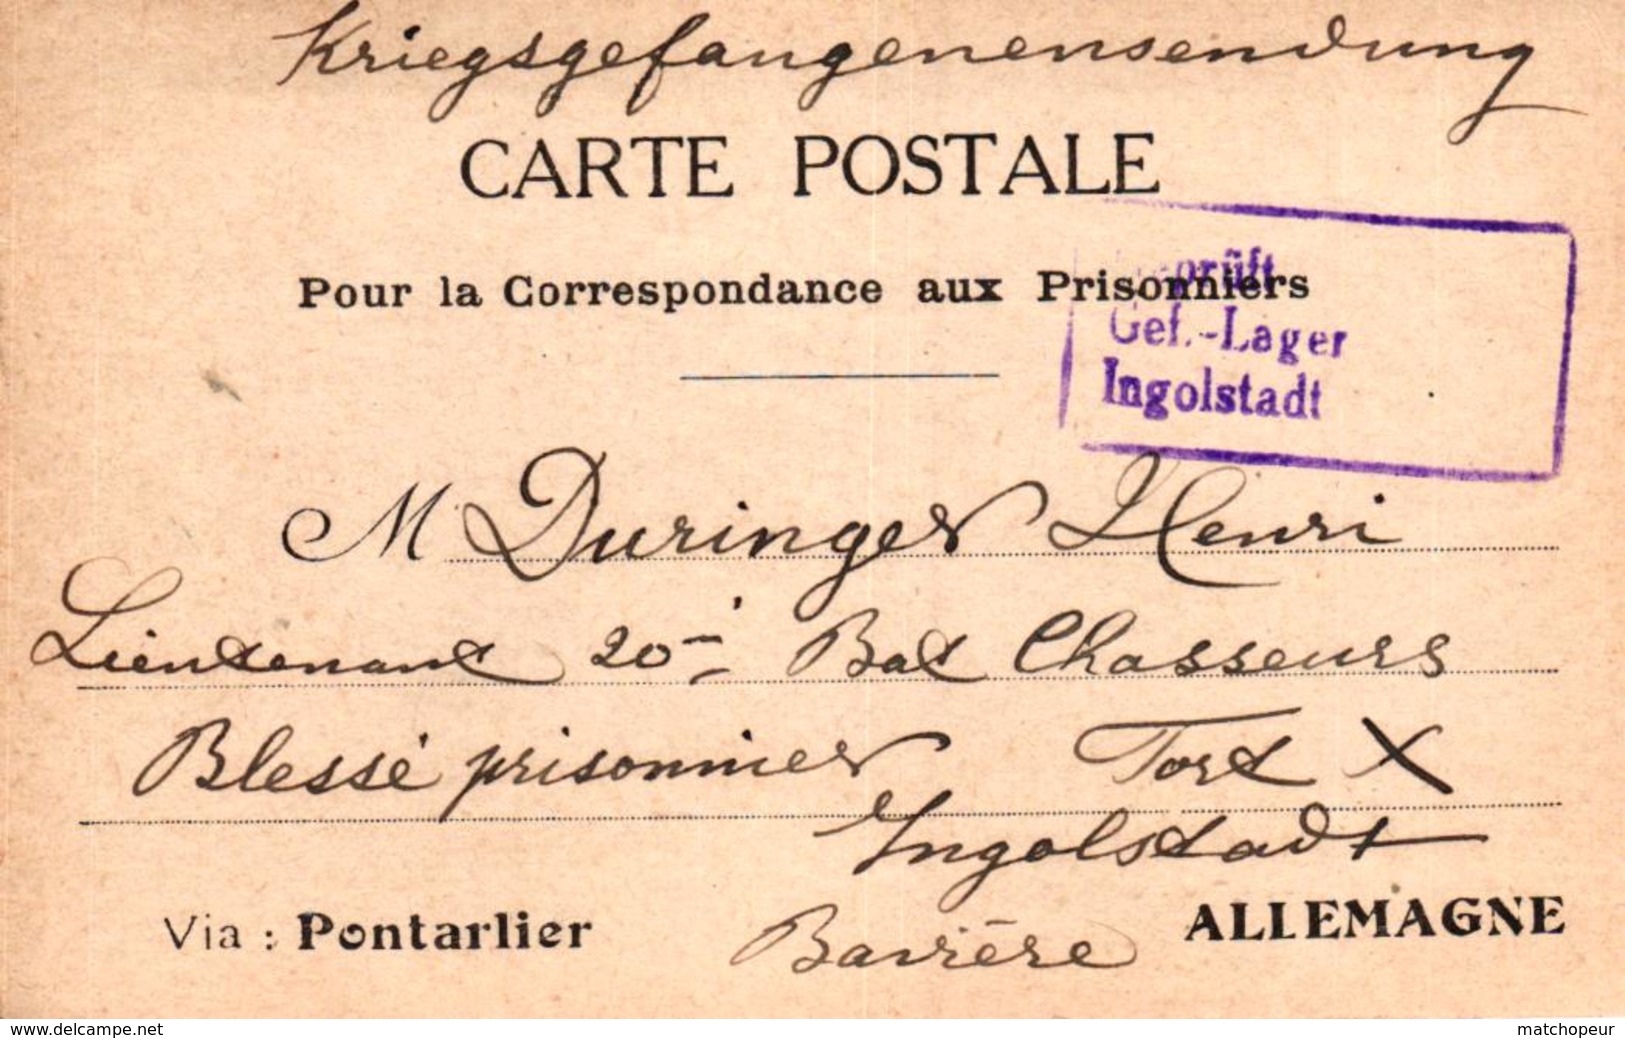 Kriegsgefangenensendung
CARTE POSTALE
Pour la Correspondance aux Prisonniers
Geprüft
Gef.-Lager
Ingolstadt
M Duringer Henri
Lieutenant 20me Bat Chasseurs
Blessé prisonnier Fort X
Ingolstadt
Via : Pontarlier Bavière ALLEMAGNE
www.delcampe.net matchopeur